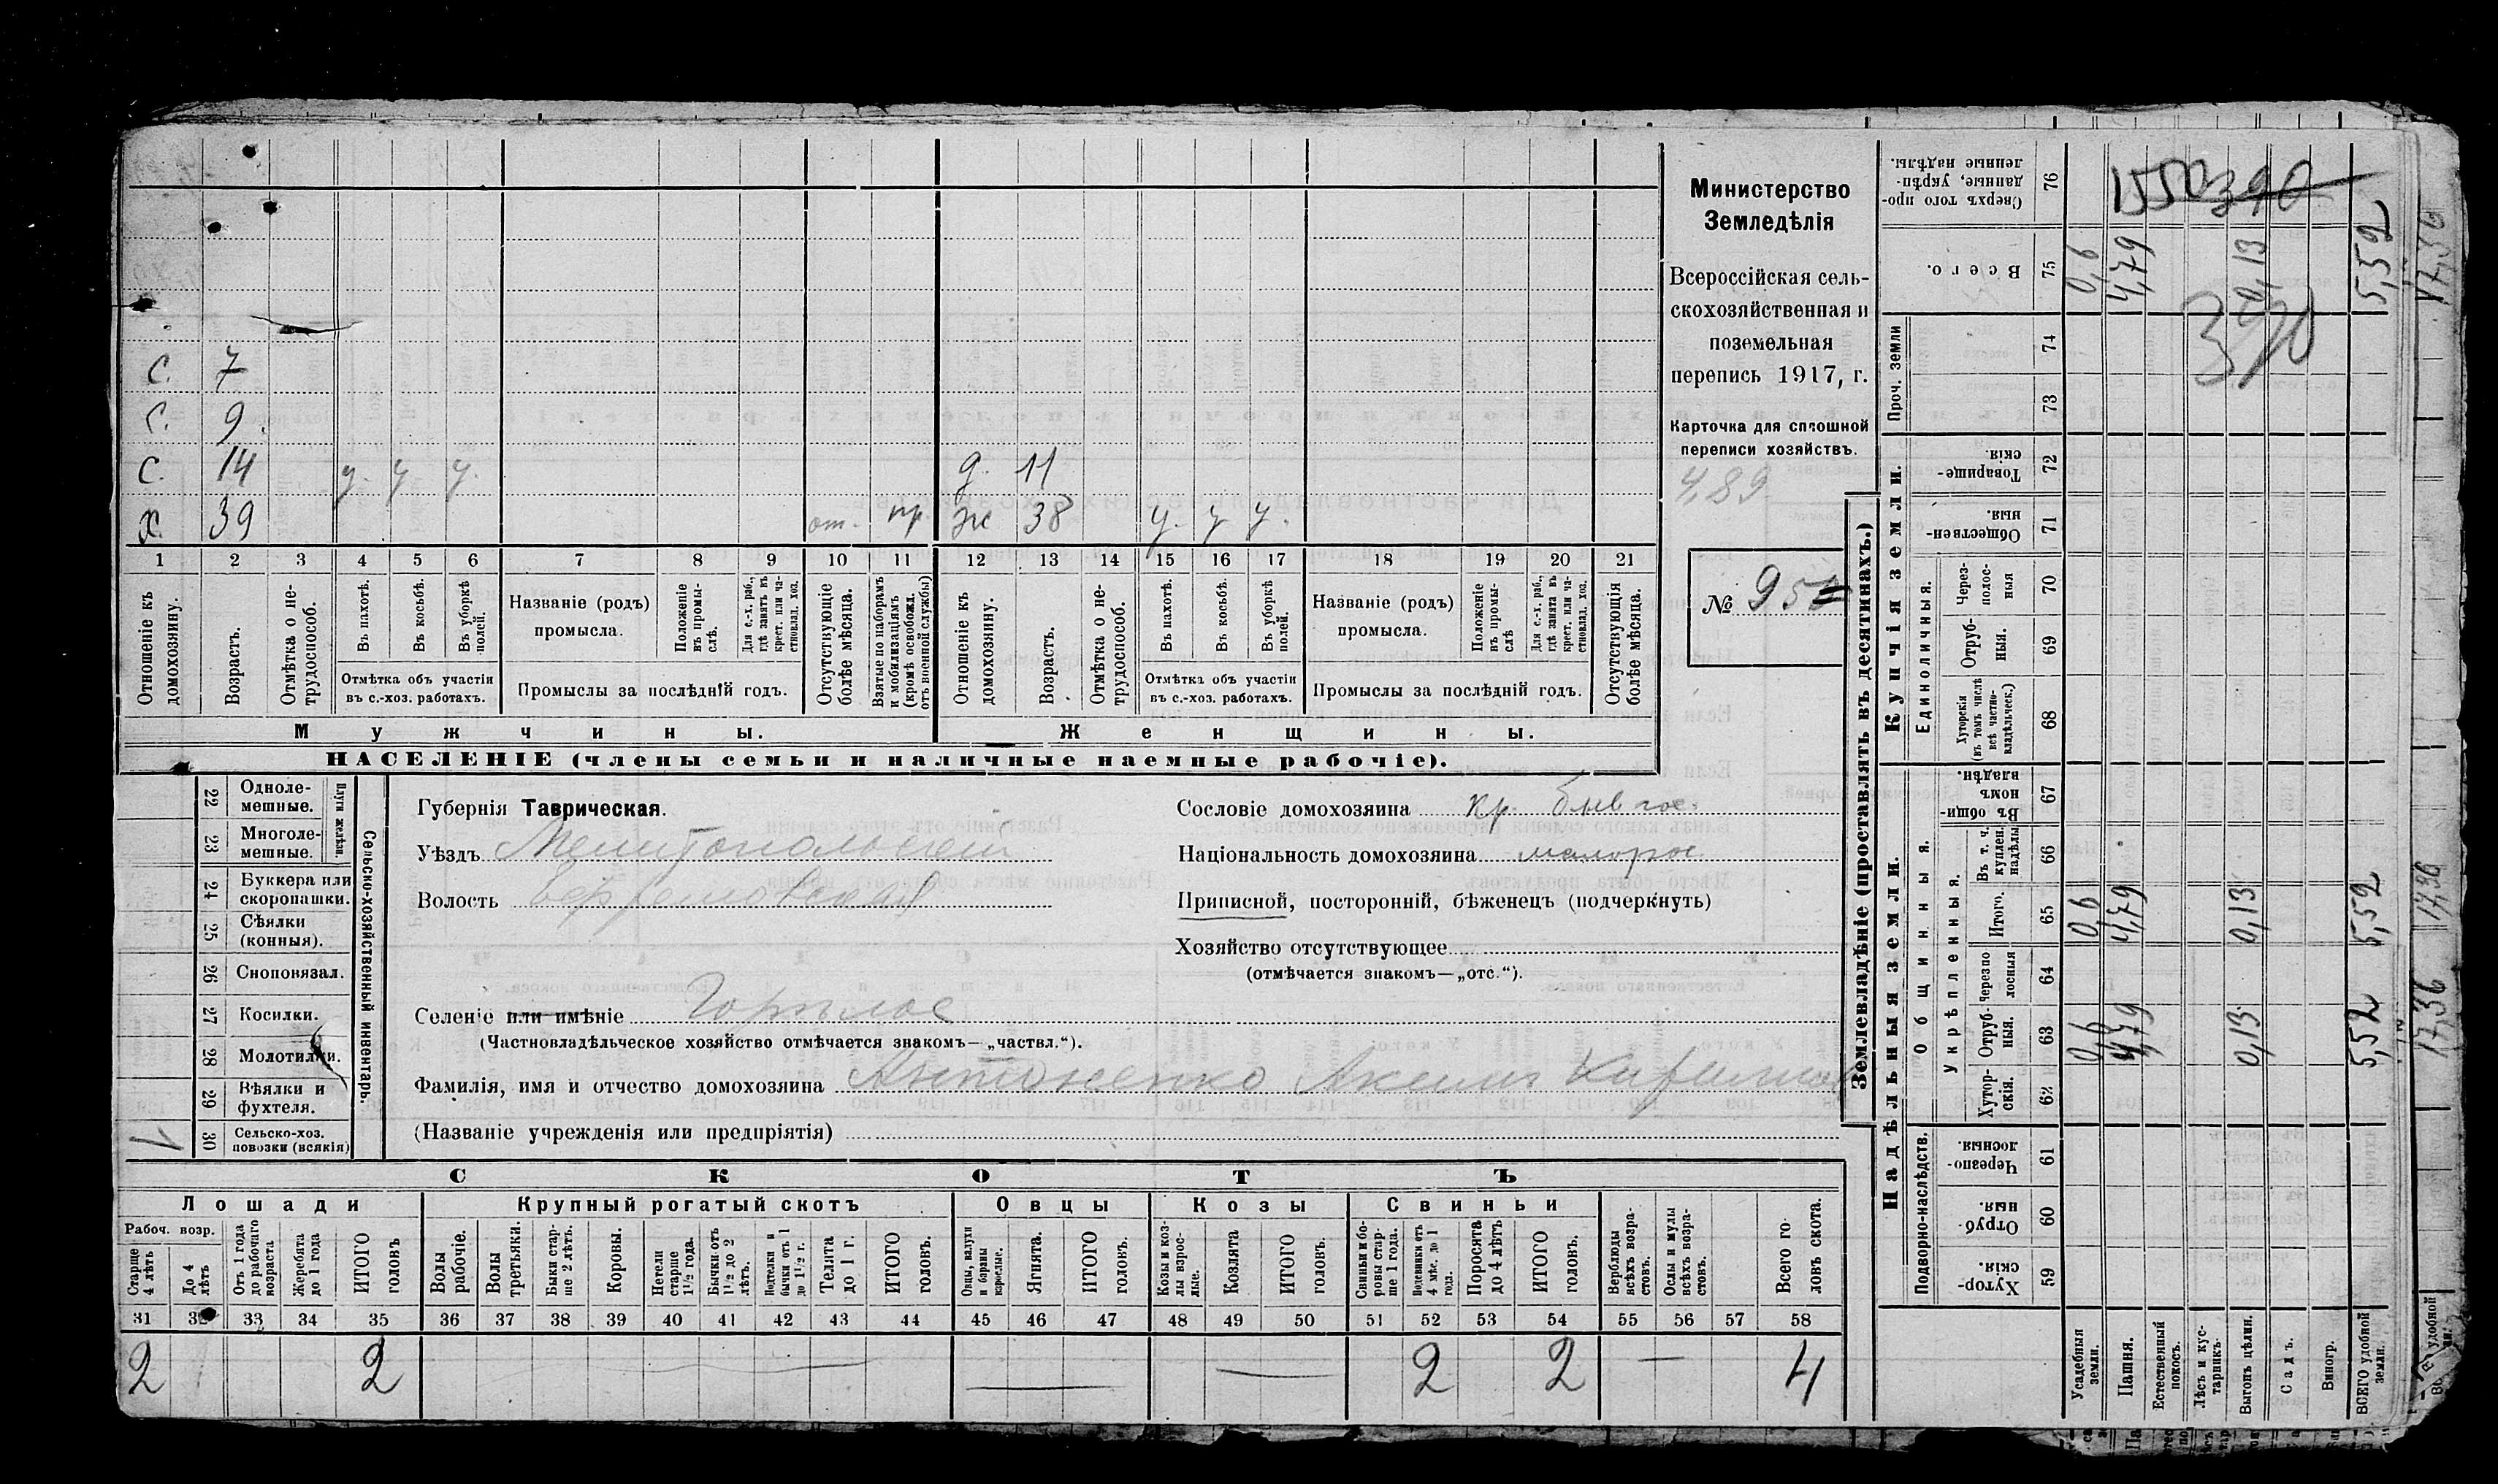 С. 7
С. 9.
С. 14 у. у у. д. 11
х. 39 от. пр ж 38 у. у у.
1 2 3 4 5 6 7 8 9 10 11 12 13 14 15 16 17 18 19 20 21
Отношеніе къ домохозяину.
Возрастъ.
Отмѣтка о не-трудоспособ.
Въ пахотѣ.
Въ косьбѣ.
Въ уборкѣ полей.
Отмѣтка объ участіи
въ с.-хоз. работахъ.
Названіе (родъ)
промысла.
Положеніе въ промы-слѣ.
Для с.-х. раб., гдѣ занятъ въ крест. или ча-стновлад. хоз.
Промыслы за послѣдній годъ.
Отсутствующіе болѣе мѣсяца.
Взятые по наборамъ и мобилизаціямъ (кромѣ освобожд. отъ военной службы)
Отношеніе къ домохозяину.
Возрастъ.
Отмѣтка о не-трудоспособ.
Въ пахотѣ.
Въ косьбѣ.
Въ уборкѣ полей.
Отмѣтка объ участіи
въ с.-хоз. работахъ.
Названіе (родъ)
промысла.
Положеніе въ промы-слѣ
Для с.-х. раб., гдѣ занята въ крест. или ча-стновлад. хоз.
Промыслы за послѣдній годъ.
Отсутствующія болѣе мѣсяца.
Мужчины. Женщины.
НАСЕЛЕНІЕ (члены семьи и наличные наемные рабочіе).
Министерство
Земледѣлія
Всероссійская сель-
скохозяйственная и
поземельная
перепись 1917, г.
Карточка для сплошной
переписи хозяйствъ.
4,89
№ 95
22 Одноле-мешные.
23 Многоле-мешные.
Плуги желѣзн.
24 Буккера или скоропашки.
25 Сѣялки (конныя).
26 Снопонязал.
27 Косилки.
28 Молотилки.
29 Вѣялки и фухтеля.
30 Сельско-хоз. повозки (всякія)
Сельско-хозяйственный инвентарь.
Губернія Таврическая.
Уѣздъ Мелитопольскій
Волость
Селеніе или имѣніе
(Частновладѣльческое хозяйство отмѣчается знакомъ—„частвл.“).
Фамилія, имя и отчество домохозяина Антоненко Аким
(Названіе учрежденія или предпріятія)
Сословіе домохозяина кр. быв гос.
Національность домохозяина малорос
Приписной, посторонній, бѣженецъ (подчеркнуть)
Хозяйство отсутствующее
(отмѣчается знакомъ—„отс.“).
СКОТЪ
Лошади Крупный рогатый скотъ Овцы Козы Свиньи
Рабоч. возр.
Старше 4 лѣтъ
До 4 лѣтъ
Отъ 1 года до рабочаго возраста
Жеребята до 1 года
ИТОГО головъ
Волы рабочіе.
Волы третьяки.
Быки стар-ше 2 лѣтъ.
Коровы.
Нетели старше 1½ года.
Бычки отъ 1½ до 2 лѣтъ.
Подтелки и бычки отъ 1 до 1½ г.
Телята до 1 г.
ИТОГО головъ.
Овцы, валухи и бараны взрослые.
Ягнята.
ИТОГО головъ.
Козы и коз-лы взрос-лые.
Козлята
ИТОГО головъ.
Свиньи и бо-ровы стар-ше 1 года.
Подсвинки отъ 4 мѣс. до 1 года.
Поросята до 4 лѣтъ
ИТОГО головъ.
Верблюды всѣхъ возра-стовъ.
Ослы и мулы всѣхъ возра-стовъ.
Всего го-ловъ скота.
31 32 33 34 35 36 37 38 39 40 41 42 43 44 45 46 47 48 49 50 51 52 53 54 55 56 57 58
2 2 — — — 2 2 — 4
Землевладѣніе (проставлять въ десятинахъ.)
Надѣльныя земли. Купчія земли. Проч. земли
Подворно-наслѣдств. Общинныя. Укрѣпленныя. Единоличныя.
Сверхъ того про-данные, укрѣп-ленные надѣлы. 76
Всего. 75 0,6 4,79 0,13 5,52
74
390
73
Товарище-скія. 72
Обществен-ныя. 71
Через-полос-ныя 70
Отруб-ныя. 69
Хуторскія (въ томъ числѣ всѣ частно-владѣльческ.) 68
Въ общи-номъ владѣн. 67
Въ т. ч. куплен. надѣлы 66
Итого. 65 0,6 4,79 0,13 5,52
Черезпо лосныя 64
Отруб-ныя. 63 0,6 4,79 0,13 5,52
Хутор-скія. 62
Черезпо-лосныя 61
Отруб-ныя. 60
Хутор-скія. 59
Усадебныя земли.
Пашня.
Естественный покосъ.
Лѣсъ и кус-тарникъ.
Выгонъ цѣлин.
Садъ.
Виногр.
ВСЕГО удобной земли.
17,36
17,36
17,36
удобной